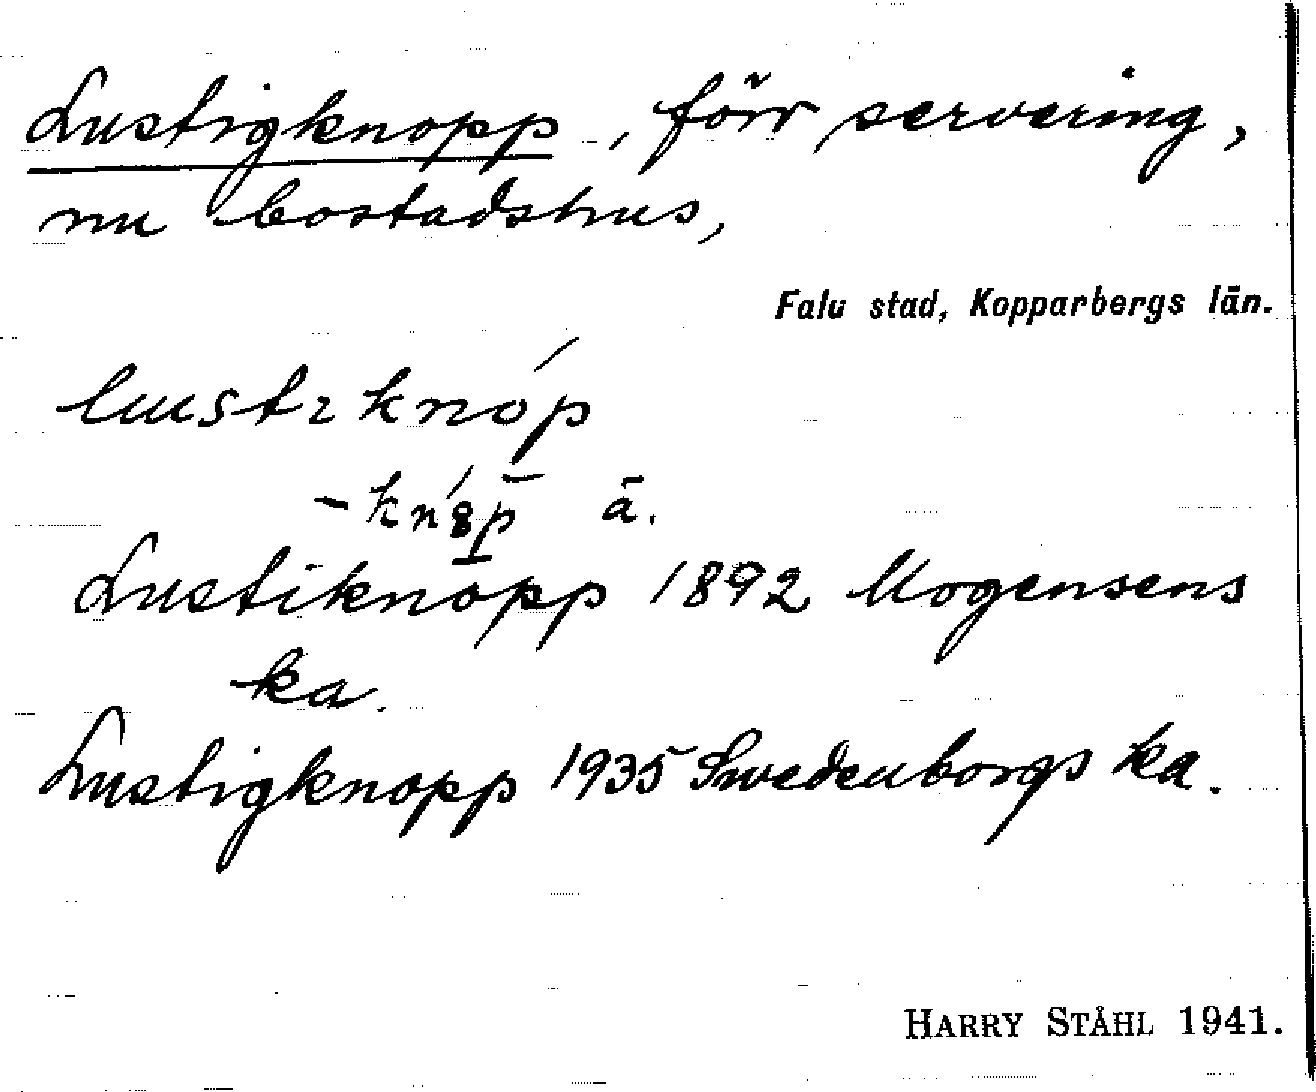 Lustigknopp, förr servering,
nu bostadshus,
Falu stad, Kopparbergs län.
lustɩknóp
-kn8́p̄ ä.
Lustiknopp 1892 Mogensens
ka.
Lustigknopp 1935 Swedenborgs ka.
HARRY STÅHL 1941.